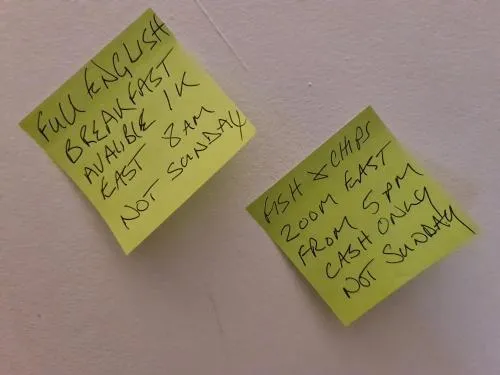 FULL ENGLISH
BREAKFAST
AVALIBLE 1K
EAST 8AM
NOT SUNDAY
FISH & CHIPS
200M EAST
FROM 5PM
CASH ONLY
NOT SUNDAY